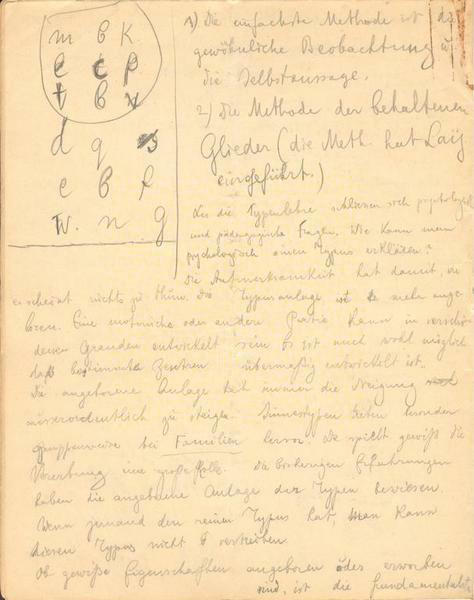 m b k
e c p
t b v
d q
c b f
w. n g
1) Die einfachste Methode ist die
gewöhnliche Beobachtung u
die Selbstaussage.
2) Die Methode der behaltenen
Glieder (die Meth. hat Laÿ
eingeführt.)
An die Typenlehre schliessen sich psychologische
und pädagogische Fragen. Wie kann man
psychologisch einen Typus erklären?
Die Aufmerksamkeit hat damit, wie
es scheint nichts zu thun. Die Typusanlage ist mehr ange-
boren. Eine motorische oder andere Partie kann in verschie-
denen Graden entwickelt sein. Es ist auch wohl möglich
daß bestimmte Zentren übermäßig entwickelt ist.
Die angeborene Anlage hat immer die Neigung
ausserordentlich zu steigen. Sinnestypen treten
gruppenweise bei Familien hervor. Da spielt gewiß die
Vererbung eine große Rolle. Die bisherigen Erfahrungen
haben die angeborene Anlage der Typen bewiesen.
Wenn jemand den reinen Typus hat, man kann
diesen Typus nicht
Ob gewiße Eigenschaften angeboren oder erworben
sind, ist die fundamentalste